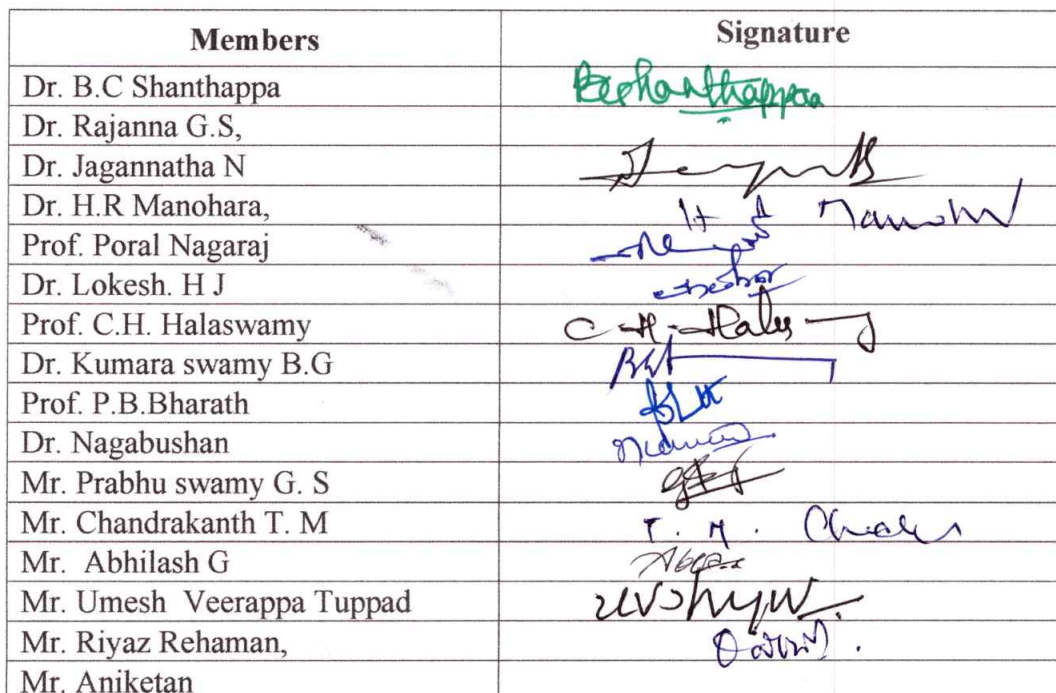 Members Signature
Dr. B.C Shanthappa Bcshanthappa
Dr. Rajanna G.S,
Dr. Jagannatha N
Dr. H.R Manohara, H R Manohar
Prof. Poral Nagaraj
Dr. Lokesh. H J
Prof. C.H. Halaswamy C.H. Halas
Dr. Kumara swamy B.G
Prof. P.B.Bharath
Dr. Nagabushan
Mr. Prabhu swamy G. S
Mr. Chandrakanth T. M T. M.
Mr. Abhilash G
Mr. Umesh Veerappa Tuppad
Mr. Riyaz Rehaman,
Mr. Aniketan